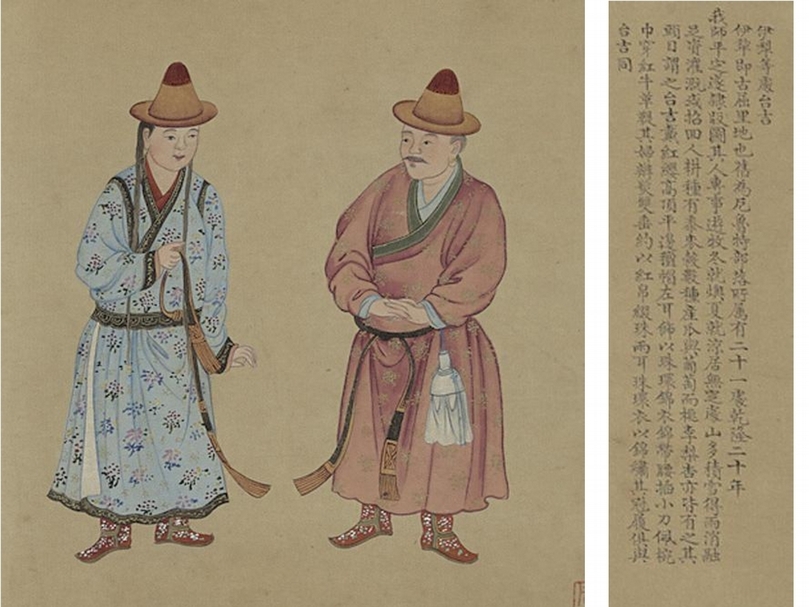 伊犂等處台吉
伊犂即古屈里地也舊為厄魯特部落所屬有二十一處乾隆二十年
我師平定遂隸版圖其人專事遊牧冬就燠夏就涼居無定處山多積雪得雨消融
足資灌溉或招回人耕種有黍麥穀數種產瓜與葡萄而桃李梨杏亦皆有之其
頭目謂之台吉戴紅纓高頂平邊氊帽左耳飾以珠環錦衣錦帶腰插小刀佩椀
巾穿紅牛革鞾其婦辮髮雙垂約以紅帛綴珠兩耳珠環衣以錦繡其冠履俱與
台吉同